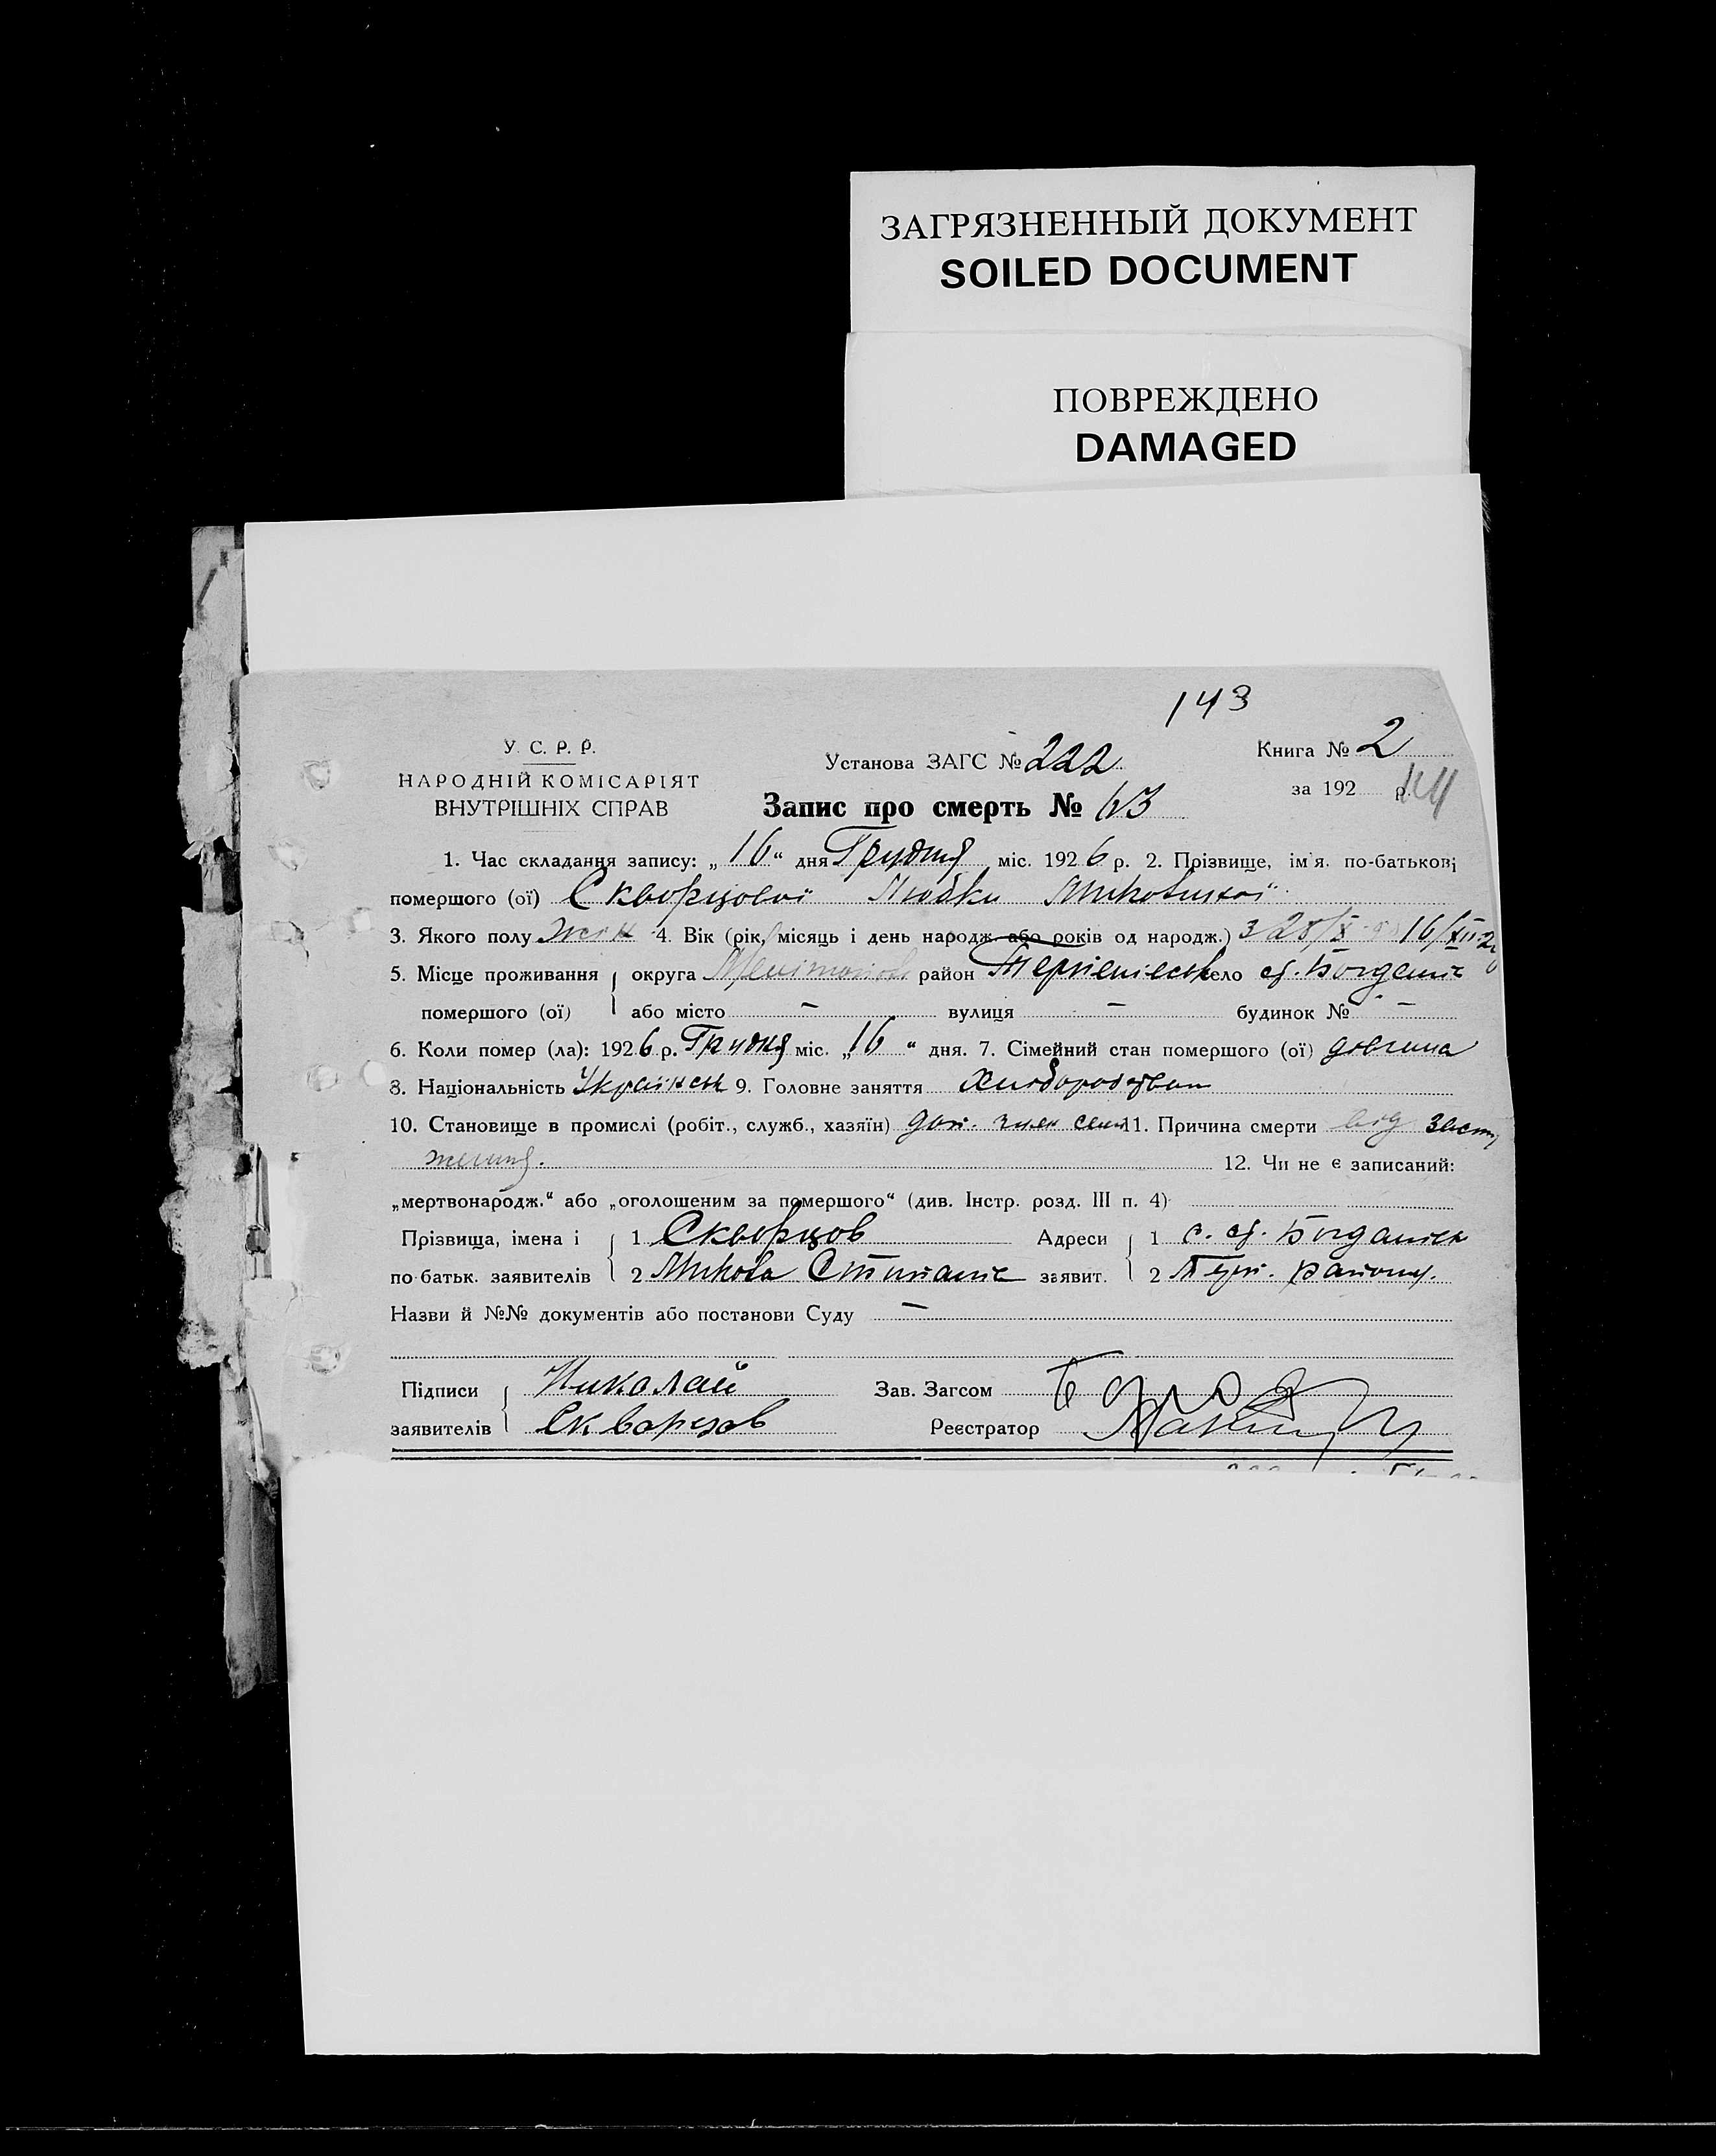 ЗАГРЯЗНЕННЫЙ ДОКУМЕНТ
SOILED DOCUMENT
ПОВРЕЖДЕНО
DAMAGED
143
У. С. Р. Р.
НАРОДНІЙ КОМІСАРІЯТ
ВНУТРІШНІХ СПРАВ
Установа ЗАГС № 222
Запис про смерть № 63
Книга № 2
за 192 р.
1. Час складання запису: „16“ дня Грудня міс. 1926 р. 2. Прізвище, ім'я, по-батькові
помершого (ої) Скворцової Любки Миковиної
3. Якого полу жен 4. Вік (рік, місяць і день народж. або років од народж.) З 28/X 16/XII-26
5. Місце проживання помершого (ої) округа район село с. Богданів
або місто – вулиця – будинок № –
6. Коли помер (ла): 1926 р. Грудня міс. „16“ дня. 7. Сімейний стан помершого (ої) дівчина
8. Національність Українськ 9. Головне заняття Хліборобств
10. Становище в промислі (робіт., служб., хазяїн) член сем 11. Причина смерти від засту
ження. 12. Чи не є записаний:
„мертвонародж.“ або „оголошеним за помершого“ (див. Інстр. розд. III п. 4)
Прізвища, імена і по-батьк. заявителів 1 Скворцов Адреси заявит. 1 с. Богданівк
2 Микола 2 району.
Назви й №№ документів або постанови Суду –
Підписи заявителів Николай Зав. Загсом
Скворцов Реєстратор